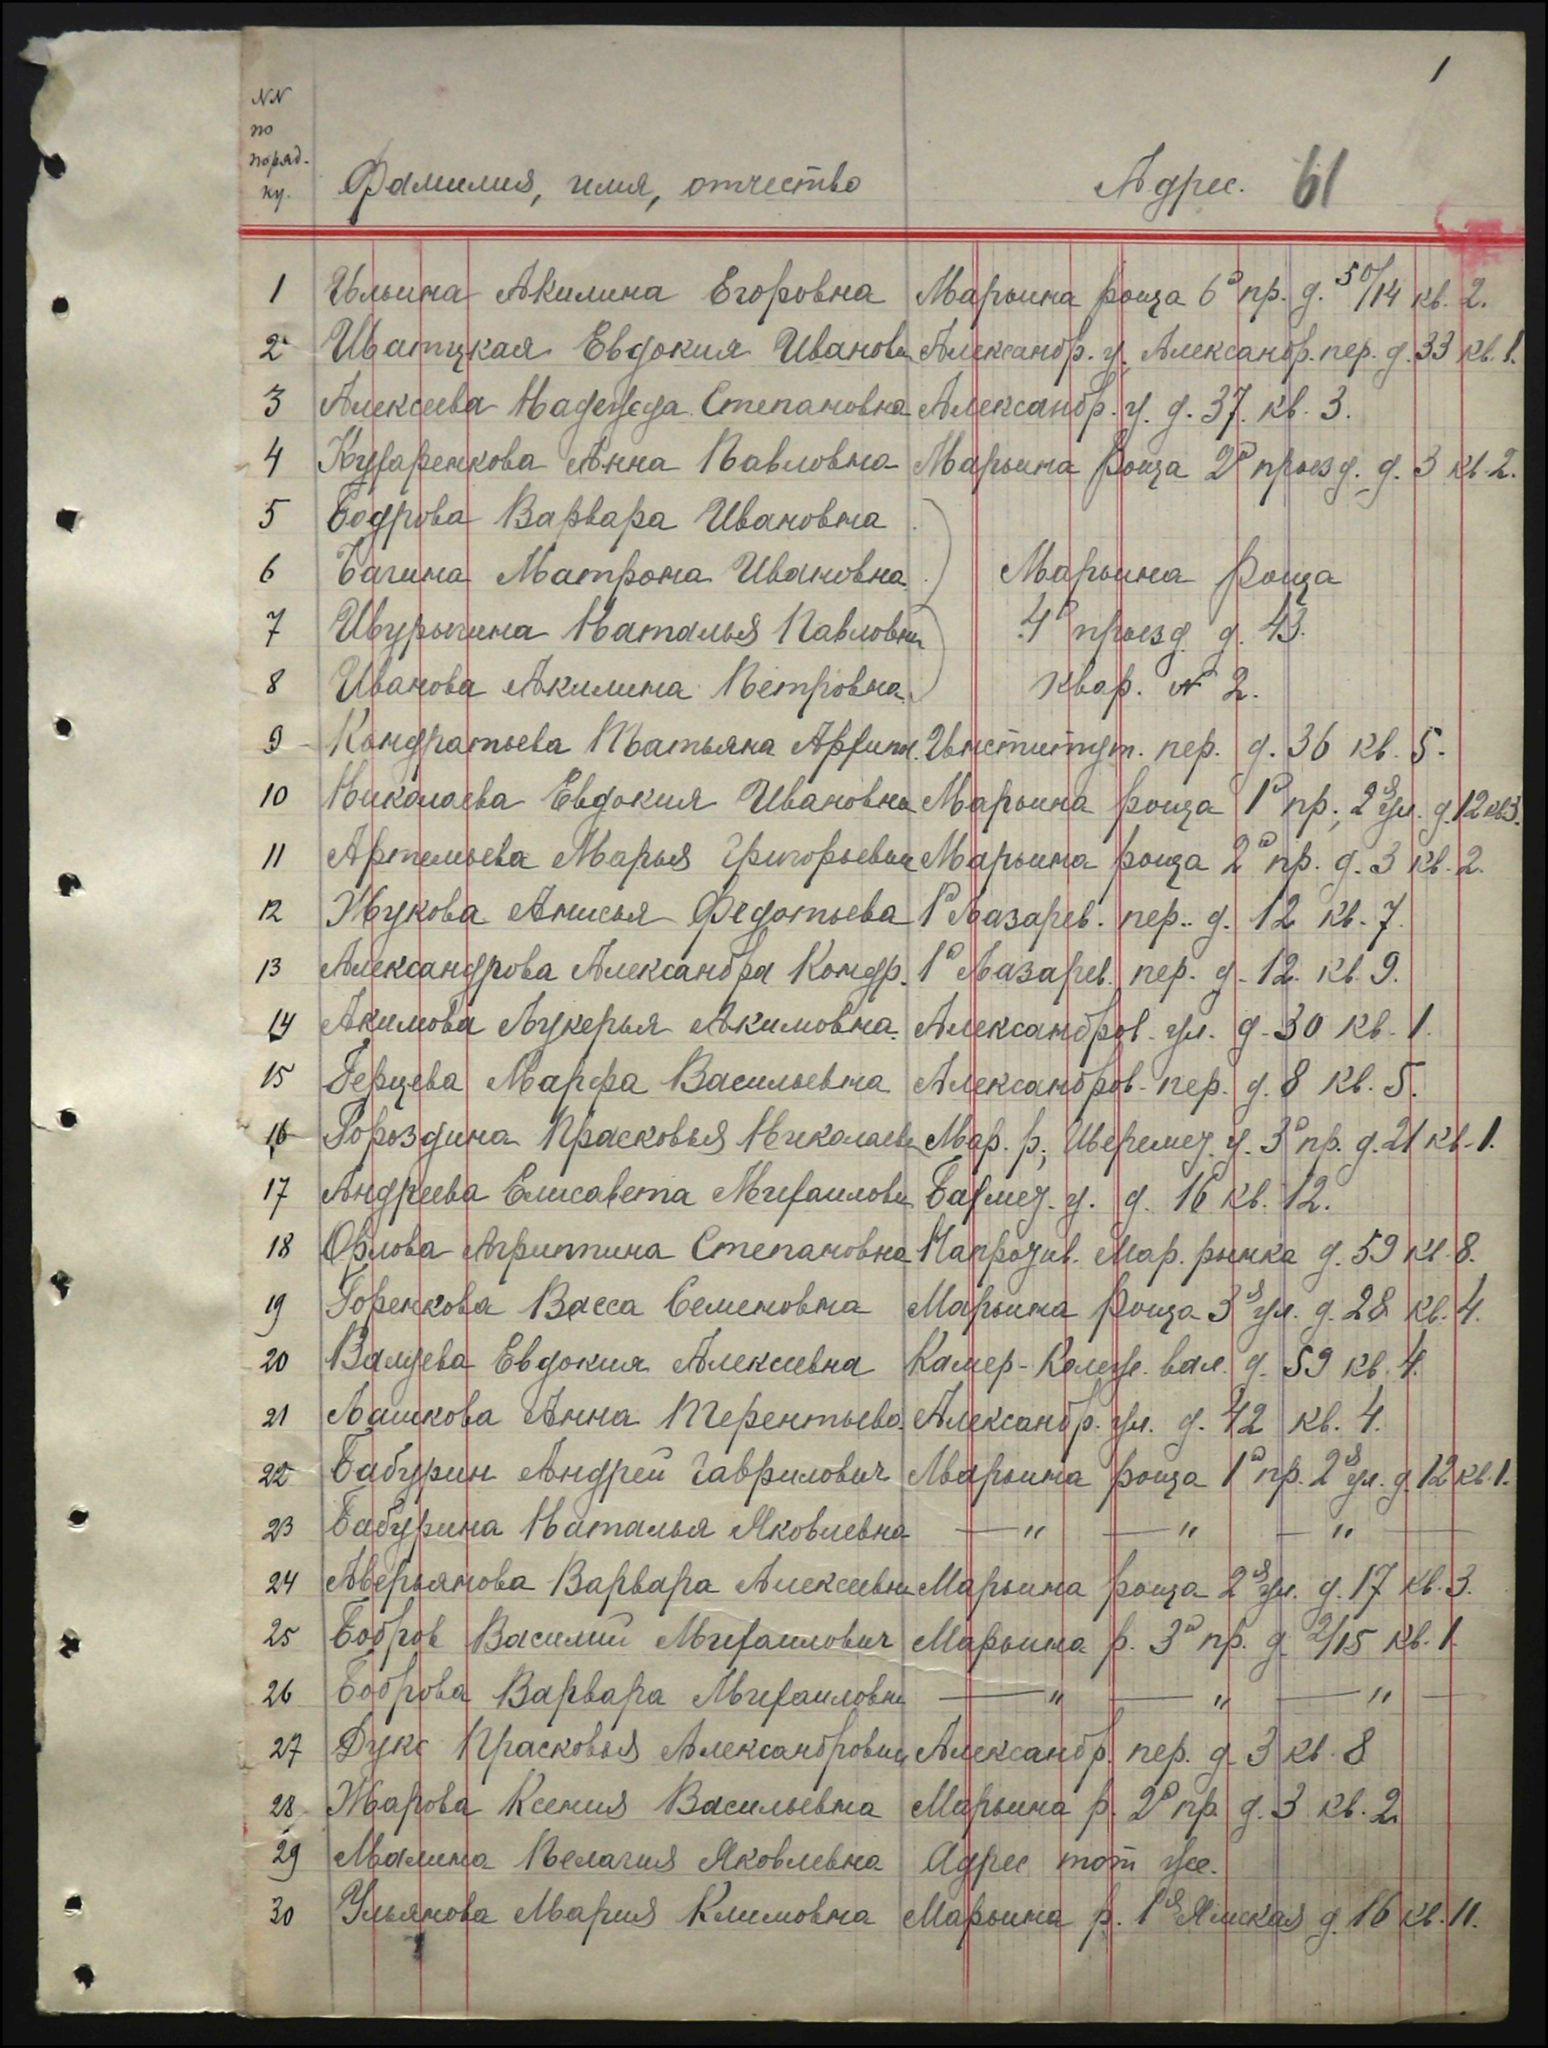 1
NN
по
поряд-
ку.
Фамилия, имя, отчество
Адрес. 61
1 Ильина Акилина Егоровна Марьина роща 6й пр. д. 50/14 кв. 2.
2 Ивановна Александр. у. Александр. пер. д. 33 кв. 1.
3 Алексеева Надежда Степановна Александр. у. д. 37 кв. 3.
4 Кухаренкова Анна Павловна Марьина роща 2й проезд. д. 3 кв. 2.
5 Бодрова Варвара Ивановна
6 Багина Матрона Ивановна Марьина роща
7 Шурыгина Наталья Павловна 4й проезд д. 43.
8 Иванова Акилина Петровна квар. № 2.
9 Кондратьева Татьяна Архип. Институт. пер. д. 36 кв. 5.
10 Николаева Евдокия Ивановна Марьина роща 1й пр., 2я ул. д. 12 кв 3.
11 Артемьева Марья Григорьевна Марьина роща 2й пр. д. 3 кв. 2.
12 Жукова Анисья Федотьева 1й Лазарев. пер. д. 12 кв. 7.
13 Александрова Александра Кондр. 1й Лазарев. пер. д. 12. кв. 9.
14 Акимова Лукерья Акимовна. Александров. ул. д. 30 кв. 1.
15 Герцева Марфа Васильевна Александров. пер. д. 8 кв. 5.
16 Гороздина Прасковья Николаевн Мар. р., Шеремет. у. 3й пр. д. 21 кв. 1.
17 Андреева Елисавета Михаиловн Бахмет. у. д. 16 кв. 12.
18 Орлова Агриппина Степановна Напрудив. Мар. рынка д. 59 кв. 8.
19 Горенкова Васса Семеновна Марьина роща 3я ул. д. 28 кв. 4.
20 Валуева Евдокия Алексеевна Камер-Колеж. вал. д. 59 кв. 4.
21 Лашкова Анна Терентьева. Александр. ул. д. 42 кв. 4.
22 Бабурин Андрей Гаврилович Марьина роща 1й пр. 2я ул. д. 12 кв. 1.
23 Бабурина Наталья Яковлевна — " — " — " —
24 Аверьянова Варвара Алексеевна Марьина роща 2я ул. д. 17 кв. 3.
25 Бобров Василий Михаилович Марьина р. 3й пр. д. 2/15 кв. 1.
26 Боброва Варвара Михаиловна — " — " — " —
27 Дукс Прасковья Александровна Александр. пер. д. 3 кв. 8
28 Жарова Ксения Васильевна Марьина р. 2й пр. д. 3 кв. 2.
29 Малина Пелагия Яковлевна Адрес тот же.
30 Ульянова Мария Климовна Марьина р. 1я Ямская д. 16 кв. 11.